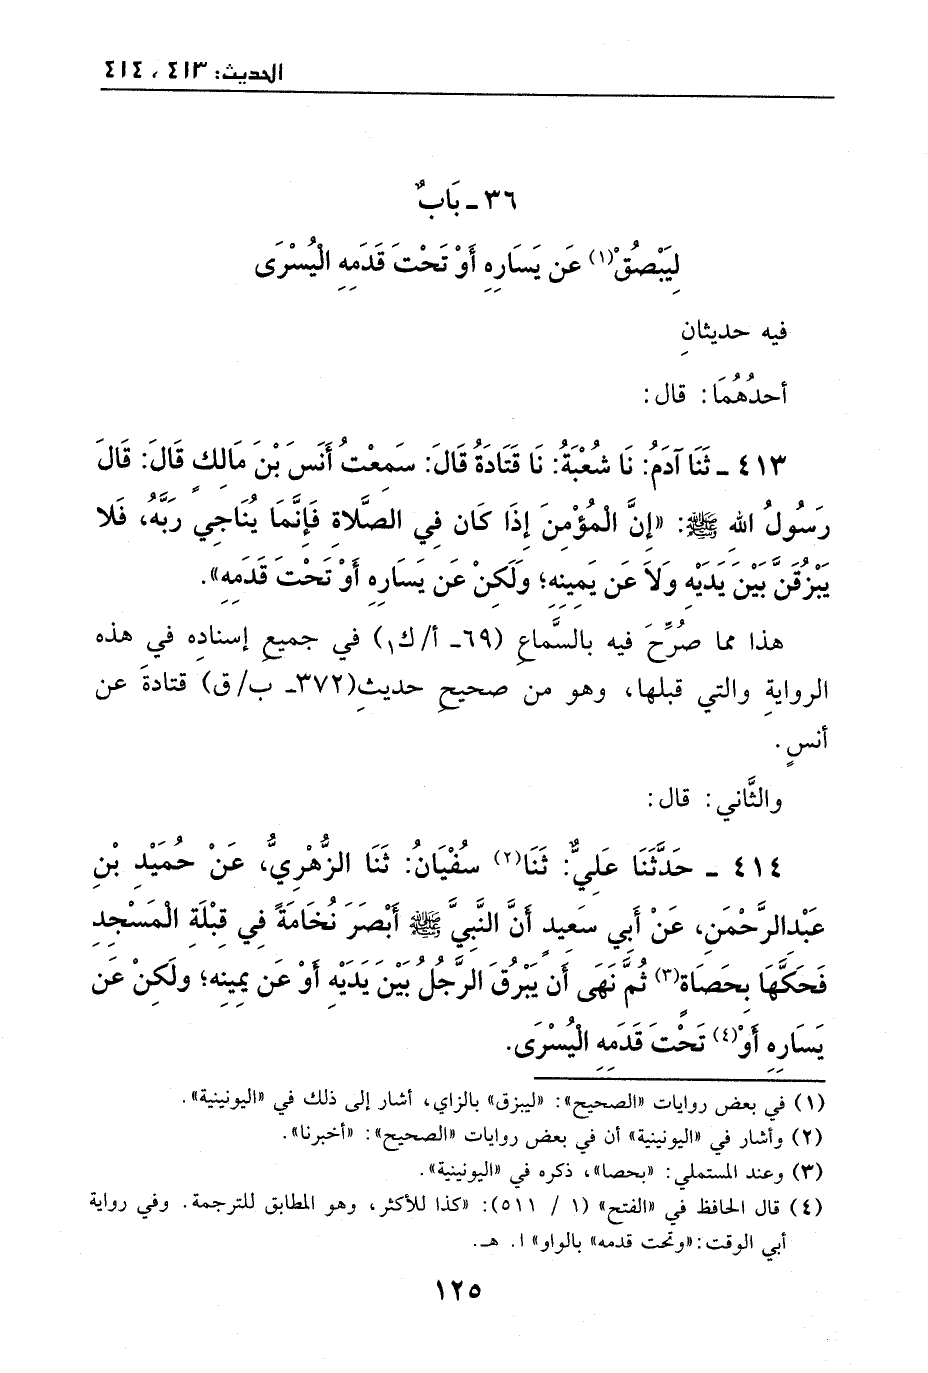 الحديث: ٤١٣ ، ٤١٤
٣٦ ـ بَابٌ
لِيَبْصُقْ(١) عَن يَسَارِهِ أَوْ تَحْتَ قَدَمِهِ الْيُسْرَى
فيه حديثانِ
أحدُهُمَا: قال:
٤١٣ ـ ثَنَا آدَمُ: نَا شُعْبَةُ: نَا قَتَادَةُ قَالَ: سَمِعْتُ أَنَسَ بْنَ مَالِكٍ قَالَ: قَالَ
رَسُولُ اللهِ ﷺ: «إِنَّ الْمُؤْمِنَ إِذَا كَان فِي الصَّلَاةِ فَإِنَّمَا يُنَاجِي رَبَّهُ، فَلَا
يَبْزُقَنَّ بَيْنَ يَدَيْهِ وَلَا عَن يَمِينِهِ؛ وَلَكِنْ عَن يَسَارِهِ أَوْ تَحْتَ قَدَمِهِ».
هذا مما صُرِّحَ فيه بالسَّماعِ (٦٩ـ أ/ك١) في جميعِ إسنادِه في هذه
الروايةِ والتي قبلها، وهو من صحيحِ حديثِ(٣٧٢ـ ب/ق) قتادةَ عن
أنسٍ.
والثَّاني: قال:
٤١٤ ـ حَدَّثَنَا عَلِيٌّ: ثَنَا(٢) سُفْيَانُ: ثَنَا الزُّهْرِيُّ، عَنْ حُمَيْدِ بْنِ
عَبْدالرَّحْمَنِ، عَنْ أَبِي سَعِيدٍ أَنَّ النَّبِيَّ ﷺ أَبْصَرَ نُخَامَةً فِي قِبْلَةِ الْمَسْجِدِ
فَحَكَّهَا بِحَصَاةٍ(٣) ثُمَّ نَهَى أَن يَبْرُقَ الرَّجُلُ بَيْنَ يَدَيْهِ أَوْ عَن يمِينِه؛ ولَكِنْ عَن
يَسَارِهِ أَوْ(٤) تَحْتَ قَدَمِهِ الْيُسْرَى.
(١) في بعض روايات «الصحيح»: «ليبزق» بالزاي، أشار إلى ذلك في «اليونينية».
(٢) وأشار في «اليونينية» أن في بعض روايات «الصحيح»: «أخبرنا».
(٣) وعند المستملي: «بحصا»، ذكره في «اليونينية».
(٤) قال الحافظ في «الفتح» (١ / ٥١١): «كذا للأكثر، وهو المطابق للترجمة. وفي رواية
أبي الوقت: «وتحت قدمه» بالواو» ا. هـ.
١٢٥